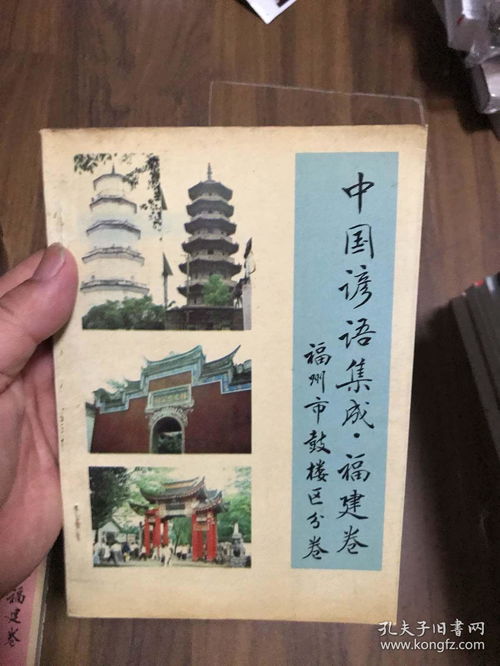 中国谚语集成·福建卷
福州市鼓楼区分卷
福建卷
孔夫子旧书网
www.kongfz.com